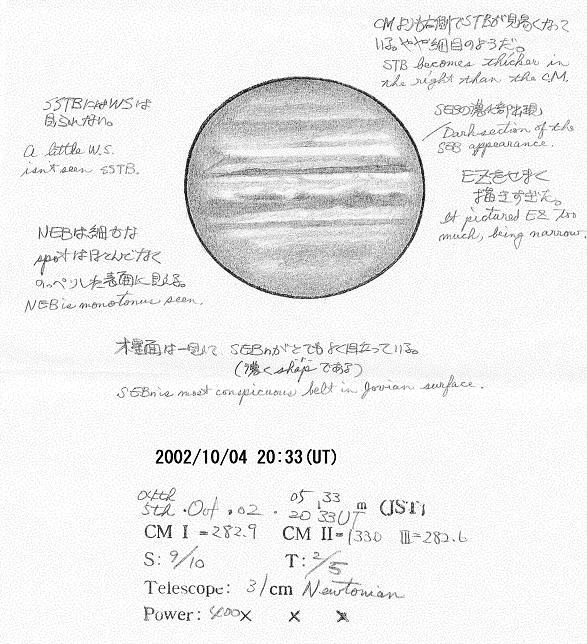 CMよりも右側でSTBが見易くなって
いる。やや細目のようだ。
STB becomes thicker in
the right than the C.M.
SSTBにはWSは
見られない。
A little W.S.
isn't seen SSTB.
SEBの濃い部出現
Dark section of the
SEB appearance.
EZをせまく
描きすぎた。
It pictured EZ too
much, being narrow.
NEBは細かな
spotはほとんどなく
のっぺりした表面に見える。
NEB is monotonus seen.
木星面は一見して、SEBnがとてもよく目立っている。
(濃くsharpである)
SEBn is most conspicuous belt in Jovian surface.
2002/10/04 20:33(UT)
5th . Oct . 02 . 05 33 m (JST)
20 33UT
CM I = 282.9 CM II = 133.0 III = 282.6
S: 9/10 T: 2/5
Telescope: 31cm Newtonian
Power: 400x x x